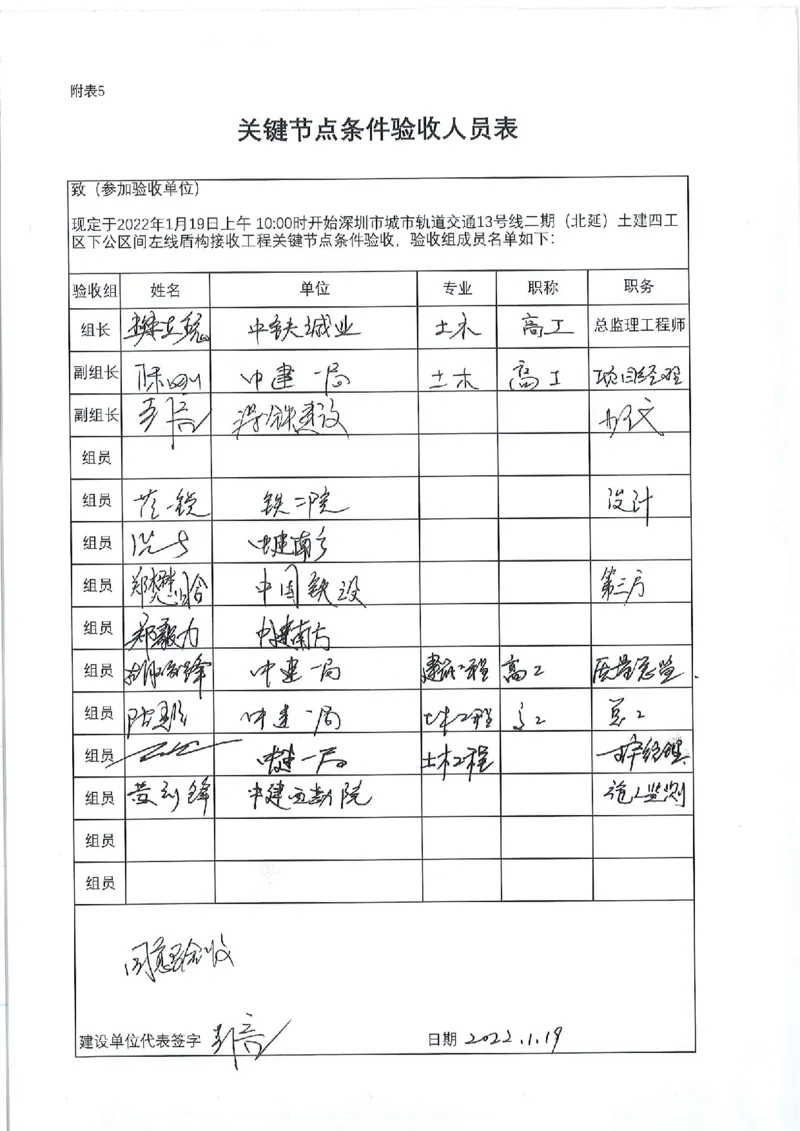 附表5
关键节点条件验收人员表
致（参加验收单位）
现定于2022年1月19日上午 10:00时开始深圳市城市轨道交通13号线二期（北延）土建四工
区下公区间左线盾构接收工程关键节点条件验收，验收组成员名单如下：
验收组 姓名 单位 专业 职称 职务
组长 中铁诚业 土木 高工 总监理工程师
副组长 陈刚 中建一局 土木 高工 项目经理
副组长 深铁建设
组员
组员 范锐 铁二院 设计
组员 中建南方
组员 中国铁设 第三方
组员 郑毅力 中建南方
组员 中建一局 高工 质量总监
组员 中建一局 土木工程 高工 总工
组员 中建一局 土木工程
组员 黄利锋 中建西勘院 监测
组员
组员
同意验收
建设单位代表签字 日期 2022.1.19